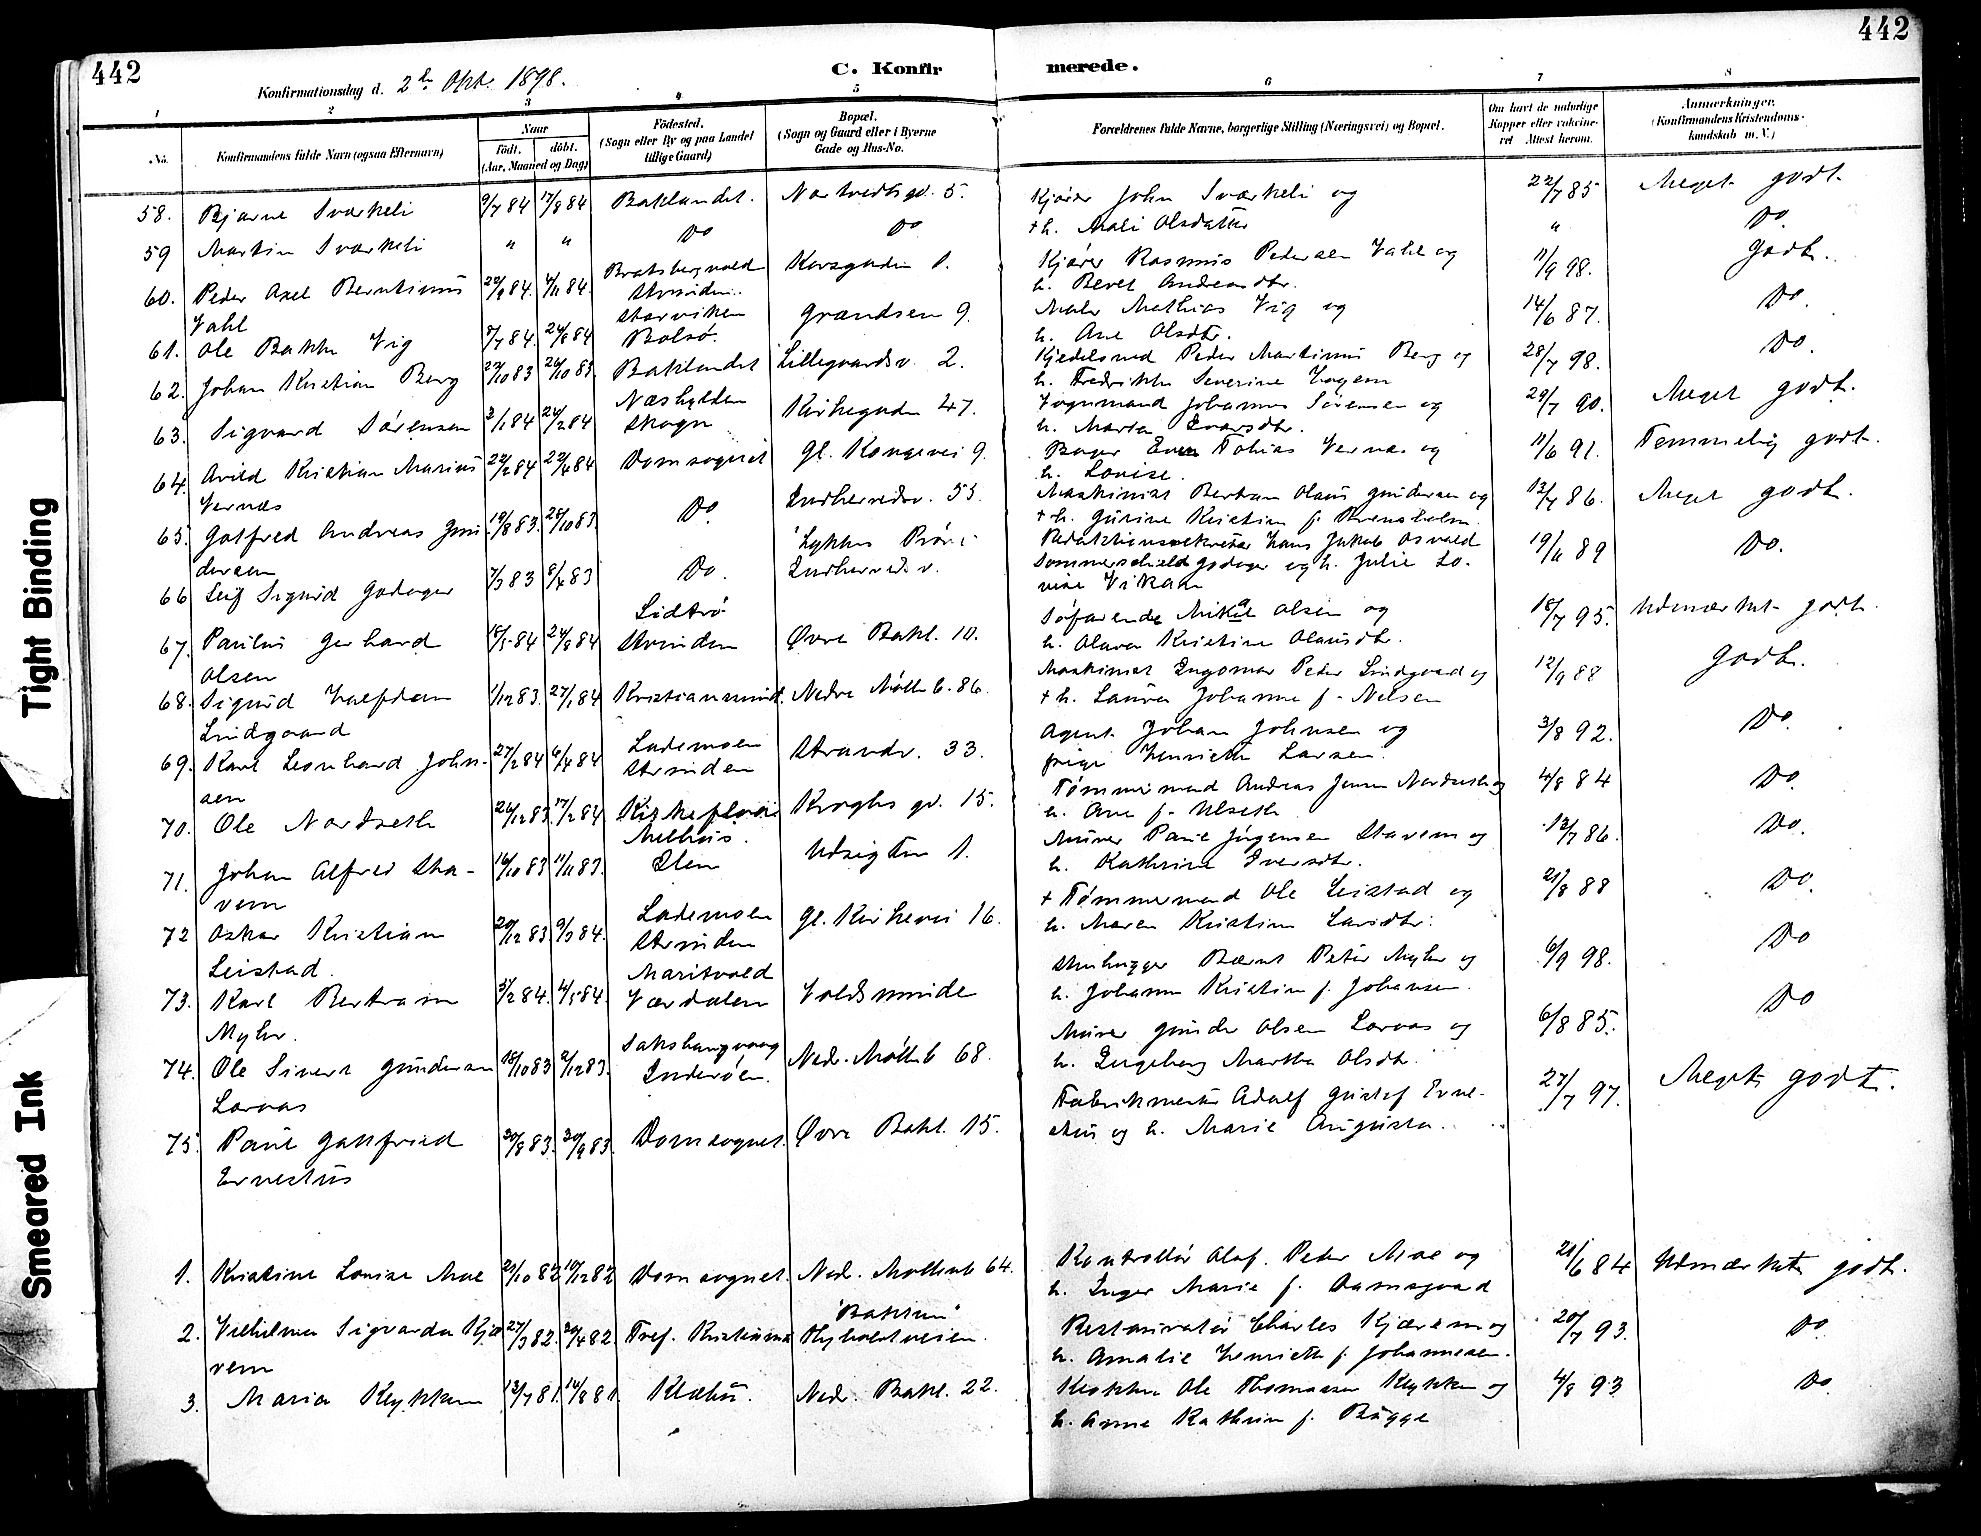 442
442
C. Konfirmerede.
Konfirmationsdag d. 2den Okt. 1898.
1 2 3 4 5 6 7 8
No.
Konfirmandens fulde Navn (ogsaa Efternavn)
Naar
Født. døbt.
(Aar, Maaned og Dag)
Fødested.
(Sogn eller By og paa Landet
tillige Gaard)
Bopæl.
(Sogn og Gaard eller i Byerne
Gade og Hus-No.
Forældrenes fulde Navne, borgerlige Stilling (Næringsvei) og Bopæl.
Om havt de naturlige
Kopper eller vakcine-
ret Attest herom.
Anmærkninger.
(Konfirmandens Kristendoms-
kundskab m. V.)
58. Bjarne Sværkeli 9/7 84 17/8 84 Baklandet. 5. Kjører John Sværkeli og 22/7 85 Meget godt.
† h. Mali Olsdatter
59 Martin Sværkeli " " Do Do " Do.
60. Peder Axel Berntinus Vahl 84. 84. Bratsbergvold Strinden. Korsgaden 1. Kjører Rasmus Pedersen Vahl og 11/9 98. Godt.
h. Beret Andreasdtr.
61. Ole Bakke Vig 7/7 84. 24/8 84 Storviken Bolsø. Grændsen 9. Maler Mathias Vig og 14/6 87. Do.
h. Ane Olsdtr.
62. Johan Kristian Berg 83 26/10 83. Baklandet Lillegaardsv. 2. Kjedelsmed Peder Martinus Berg og 28/7 98. Do.
h. Fredrikke Severine Hagen
63. Sigvard Sørensen 3/1 84 24/2 84 Skogn Kirkegaden 47. Vognmand Johannes Sørensen og 29/7 90. Meget godt.
h. Marta Ivarsdtr.
64. Arvid Kristian Marius Vernæs 22/2 84 22/4 84 Domsognet gl. Kongevei 9. Bager Even Tobias Vernæs og 11/6 91. Temmelig godt.
h. Louise.
65. Gotfred Andreas Gundersen 19/8 83. 28/10 83 Do. Indherredsv. 55. Maskinist Bertram Olaus Gundersen og 13/7 86. Meget godt.
† h. Gurine Kristine f.
66 Leif Sigurd Godager 7/3 83 8/4 83 Do. Lykkens Prøve Indherredsv. Redaktionssekretær Hans Jakob Osvald 19/11 89 Do.
Sommerschield Godager og h. Julie Lovise Vikan
67. Paulus Gerhard Olsen 18/5 84 24/8 84 Strinden Øvre Bakl. 10. Søfarende Mikal Olsen og 18/7 95. Udmærket godt.
h. Olava Kristine Olausdtr.
68. Sigurd Halfdan Lindgaard 1/12 83. 27/1 84 Kristiansund. Nedre Møllenb. 86. Maskinist Ingomar Peter Lindgaard og 12/9 88 Godt.
† h. Laura Johanne f. Nelsen
69. Karl Leonhard Johnsen 27/2 84 6/4 84 Lademoen Strinden Strandv. 33. Agent Johan Johnsen og 3/8 92. Do.
pige Henriette Larsen.
70. Ole Nordseth 26/12 83. 17/2 84 Melhus. Kroghs gd. 15. Tømmermand Andreas Jensen Nordseth og 4/8 84 Do.
h. Ane f. Ulseth
71. Johan Alfred Stavem 16/10 83 11/11 83. Ilen Udsigten 1. Murer Paul Jørgensen Stavem og 13/7 86. Do.
h. Kathrine Iversdtr.
72 Oskar Kristian Leistad. 29/12 83. 9/3 84. Lademoen Strinden gl. Kirkevei 16. † Tømmermand Ole Leistad og 21/8 88 Do.
h. Maren Kristine Larsdtr.
73. Karl Bertram Myhr. 3/2 84. 4/5 84. Maritvold Værdalen Voldsminde Stenhugger Bernt Peter Myhr og 6/9 98. Do
h. Johanna Kristine f. Johansen.
74. Ole Sivert Gundersen Lorvas 18/10 83 2/12 83. Sakshaugvaag Inderøen. Nedr. Møllenb 68. Murer Gunder Olsen Lorvas og 6/8 85. Do
h. Ingeborg Martha Olsdtr.
75. Paul Gottfried Ernestus 20/8 83. 30/9 83. Domsognet. Øvre Bakl. 15. Fabrikmester Adolf Gustaf Ernestus og h. Marie Augusta. 27/7 97. Meget godt.
1. Kristine Louise Moe 21/10 82 10/12 82 Domsognet. Ned. Møllenb 64. Kontrollør Olaf Peder Moe og 21/6 84 Udmærket godt.
h. Inger Marie f. Damsgaard
2. Vilhelmine Sigvarda Kjærem 27/3 82. 30/4 82 Tref. Kristiania "Bakken" Restauratør Charles Kjærem og 20/7 93. Do
h. Amalie Henriette f. Johannesen.
3. Maria Klykken 13/7 81. 14/8 81. Klæbu. Nedr. Bakl. 22. Klokker Ole Thomassen Klykken og 4/8 93 Do
h. Anne Kathrine f. Bugge
Tight Binding
Smeared Ink